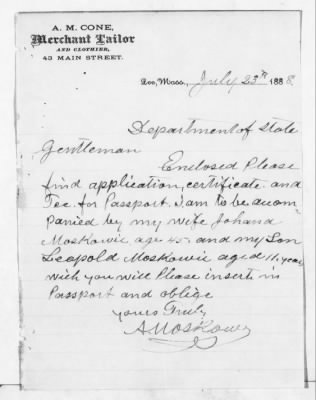 A. M. CONE,
Merchant Tailor
AND CLOTHIER,
43 MAIN STREET.
Lee, Mass., July 23th 1888.
Department of State
Gentleman
Enclosed Please
find application, certificate and
Fee. for Passport. I am to be accom
panied by my wife Johana
Moskowic age 45- and my Son
Leopold Moskowic aged 11. years
wich you will Please insert in
Passport and oblige
yours Truly
A Moskowic